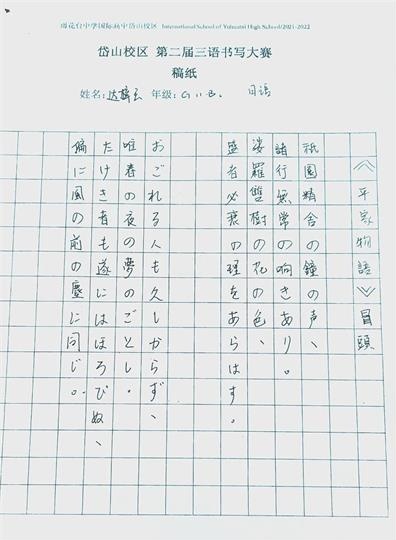 雨花台中学国际高中岱山校区 International School of Yuhuatai High School/2021-2022
岱山校区 第二届三语书写大赛
稿纸
年级: G11B. 日语
《平家物語》冒頭
祇園精舎の鐘の声、
諸行無常の响きあり。
娑羅雙樹の花の色、
盛者必衰の理をあらはす。
おごれる人も久しからず、
唯春の夜の夢のごとし。
たけき者も遂にはほろびぬ、
偏に風の前の塵に同じ。